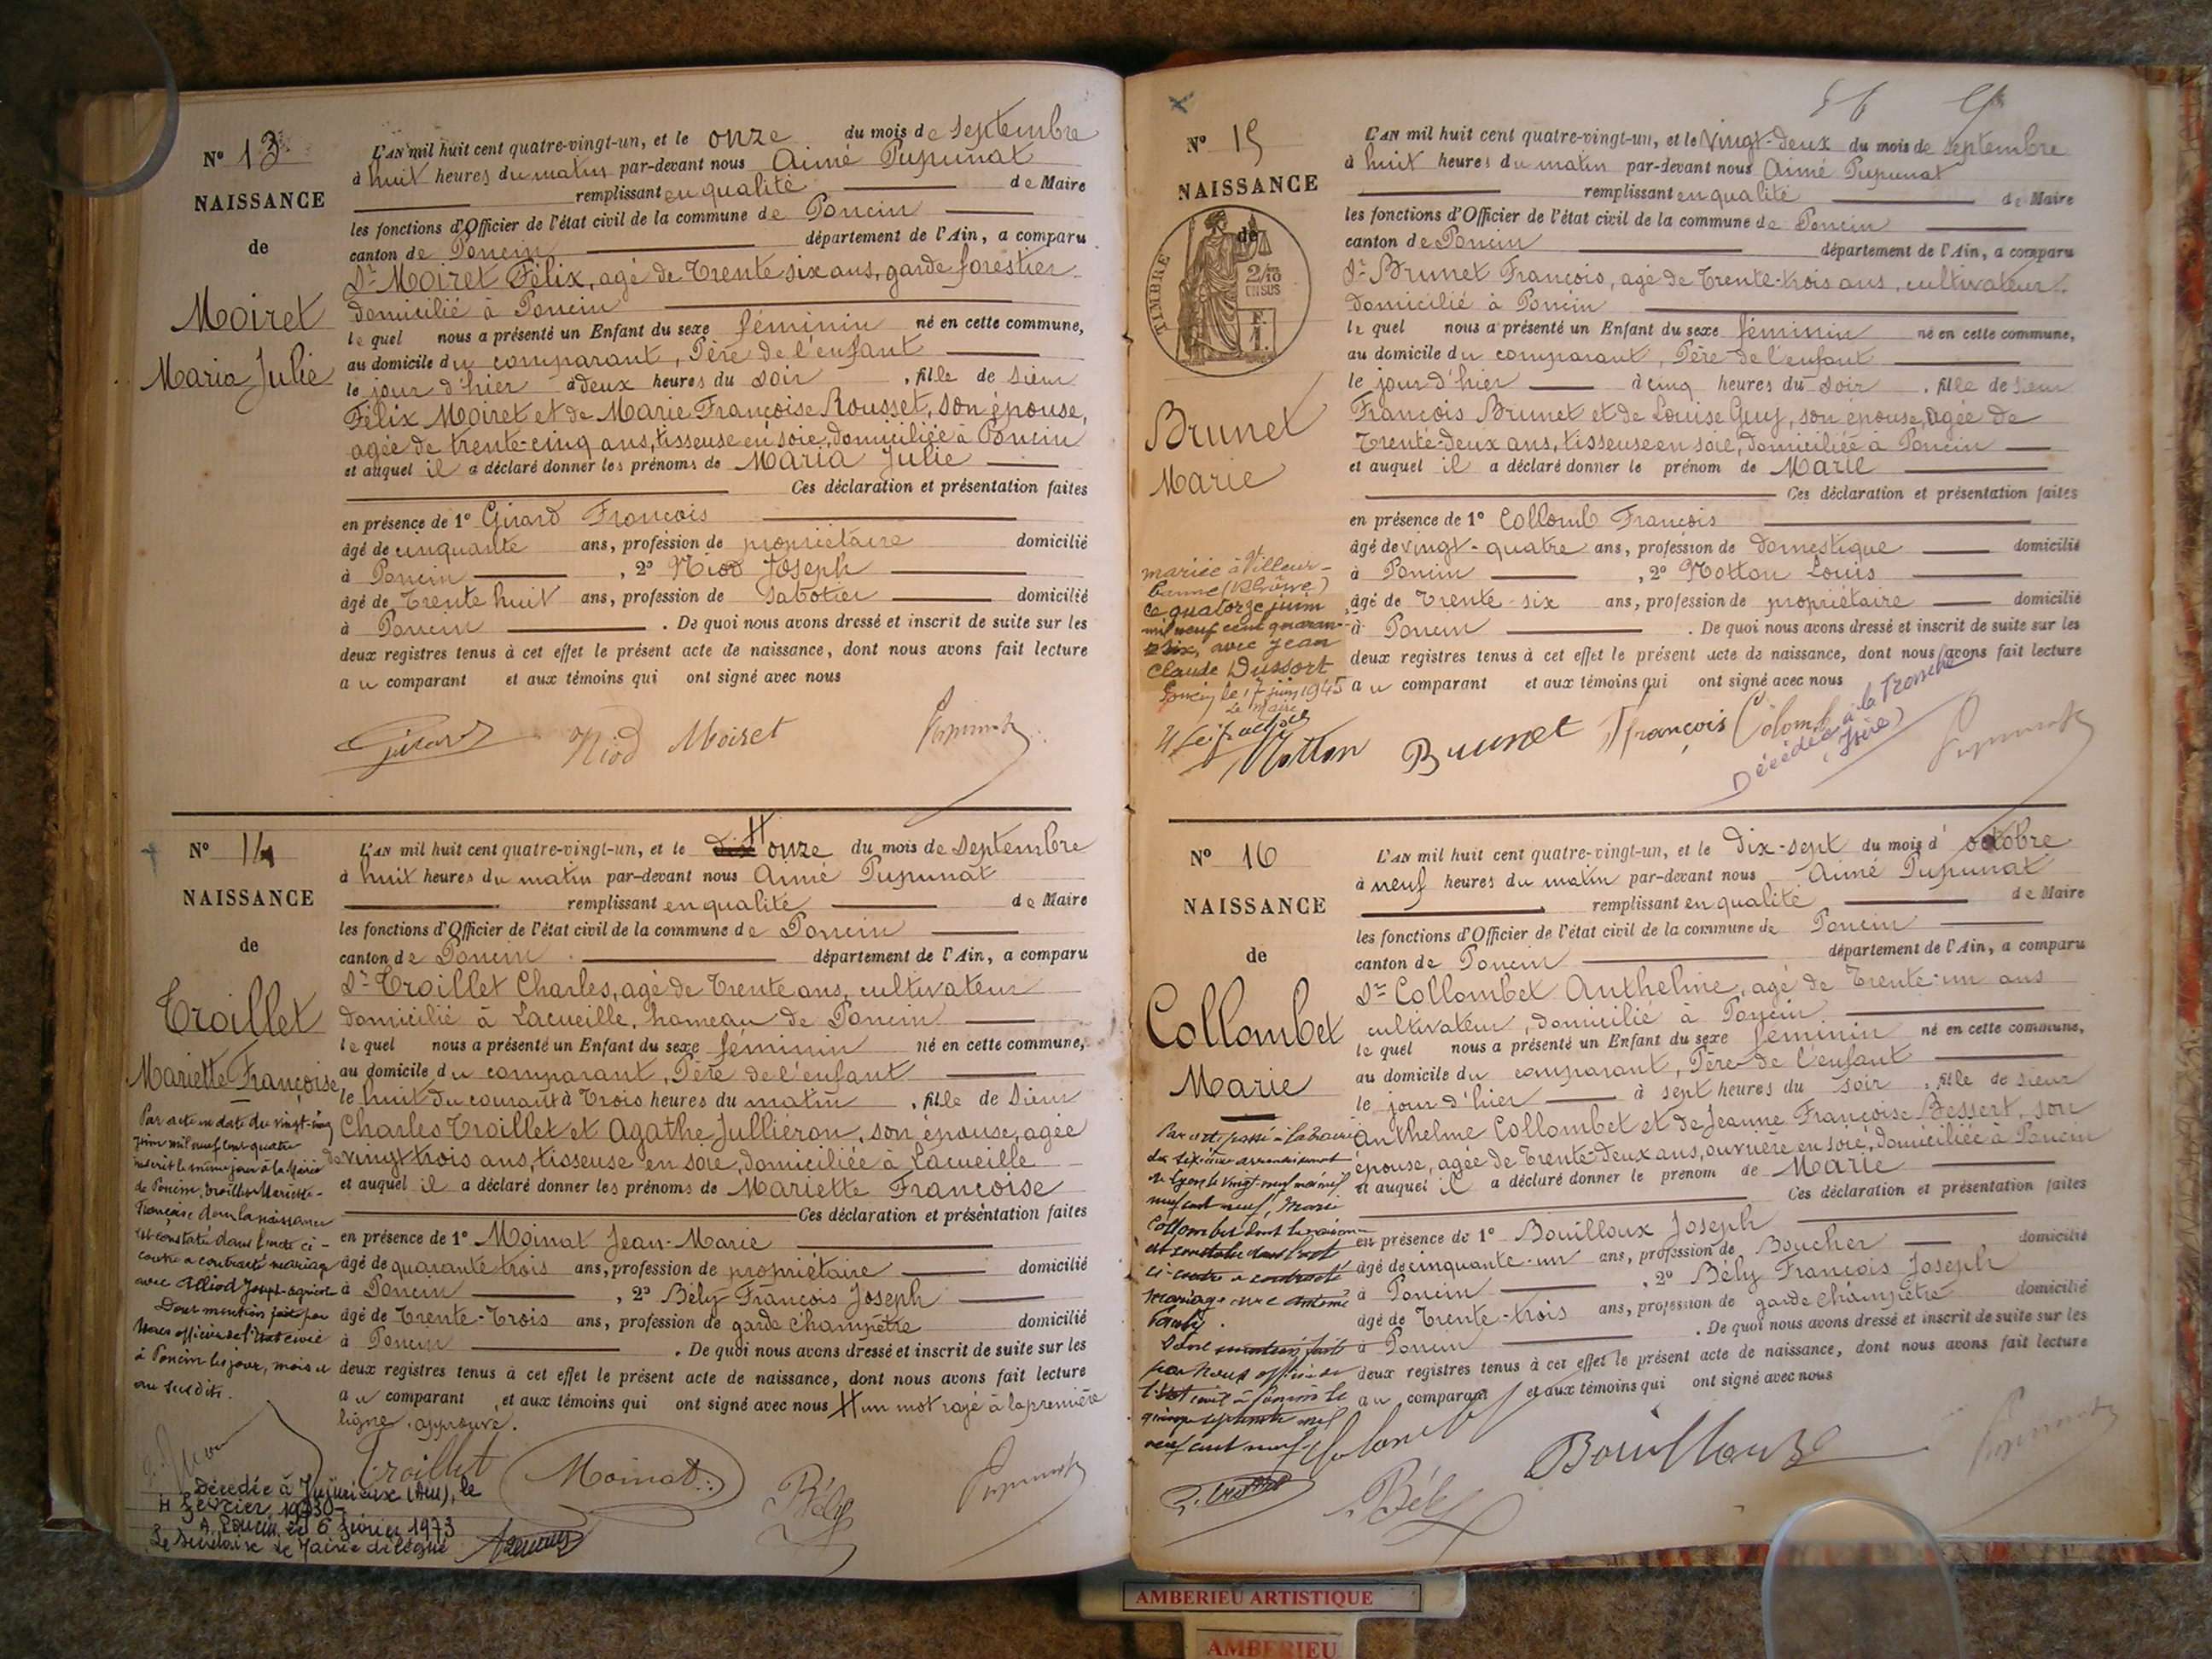 N° 13
NAISSANCE
de
Moiret
Maria Julie
L'AN mil huit cent quatre-vingt-un, et le onze du mois de septembre
à huit heures du matin par-devant nous Aimé Pupunat
remplissant en qualité de Maire
les fonctions d'Officier de l'état civil de la commune de Poncin
canton de Poncin département de l'Ain, a comparu
Sr Moiret Félix, agé de Trente six ans, garde forestier
domicilié à Poncin
lequel nous a présenté un Enfant du sexe féminin né en cette commune,
au domicile du comparant, Père de l'enfant
le jour d'hier à deux heures du soir, fille de sieur
Félix Moiret et de Marie Françoise Rousset, son épouse,
agée de trente-cinq ans, tisseuse en soie, domiciliée à Poncin
et auquel il a déclaré donner les prénoms de Maria Julie
Ces déclaration et présentation faites
en présence de 1° Girard François
âgé de cinquante ans, profession de propriétaire domicilié
à Poncin, 2° Niod Joseph
âgé de Trente huit ans, profession de Sabotier domicilié
à Poncin. De quoi nous avons dressé et inscrit de suite sur les
deux registres tenus à cet effet le présent acte de naissance, dont nous avons fait lecture
au comparant et aux témoins qui ont signé avec nous
Girard Niod Moiret Pupunat
N° 14
NAISSANCE
de
Troillet
Mariette Françoise
Par acte en date du vingt-cinq
juin mil neuf cent quatre
inscrit le même jour à la Mairie
de Poncin, Troillet Mariette-
Françoise dont la naissance
est constatée dans l'acte ci-
contre a contracté mariage
avec Alliod Joseph
Dont mention faite par
Nous officier de l'état civil
à Poncin les jour, mois et
an susdits.
L'AN mil huit cent quatre-vingt-un, et le dix onze du mois de septembre
à huit heures du matin par-devant nous Aimé Pupunat
remplissant en qualité de Maire
les fonctions d'Officier de l'état civil de la commune de Poncin
canton de Poncin département de l'Ain, a comparu
Sr Troillet Charles, agé de Trente ans, cultivateur
domicilié à Lacueille, hameau de Poncin
lequel nous a présenté un Enfant du sexe féminin né en cette commune,
au domicile du comparant, Père de l'enfant
le huit du courant à Trois heures du matin, fille de Sieur
Charles Troillet et Agathe Julliéron, son épouse, agée
de vingt trois ans, tisseuse en soie, domiciliée à Lacueille
et auquel il a déclaré donner les prénoms de Mariette Françoise
Ces déclaration et présentation faites
en présence de 1° Moinat Jean-Marie
âgé de quarante trois ans, profession de propriétaire domicilié
à Poncin, 2° Bély François Joseph
âgé de Trente-Trois ans, profession de garde champêtre domicilié
à Poncin. De quoi nous avons dressé et inscrit de suite sur les
deux registres tenus à cet effet le présent acte de naissance, dont nous avons fait lecture
au comparant, et aux témoins qui ont signé avec nous un mot rayé à la première
ligne, approuvé.
Troillet Moinat Bély Pupunat
Décédée à Jujurieux (Ain), le
4 Février
A Poncin, le 6 février 1973
Le Secrétaire de Mairie délégué
N° 15
NAISSANCE
de
TIMBRE
2/10
EN SUS
Brunet
Marie
mariée à Villeur-
banne (Rhône)
ce quatorze juin
mil neuf cent quaran-
avec Jean
Claude Dussort
Poncin le 17 juin 1945
Le Maire
L'AN mil huit cent quatre-vingt-un, et le Vingt-deux du mois de septembre
à huit heures du matin par-devant nous Aimé Pupunat
remplissant en qualité de Maire
les fonctions d'Officier de l'état civil de la commune de Poncin
canton de Poncin département de l'Ain, a comparu
Sr Brunet François, agé de Trente-trois ans, cultivateur
domicilié à Poncin
lequel nous a présenté un Enfant du sexe féminin né en cette commune,
au domicile du comparant, Père de l'enfant
le jour d'hier à cinq heures du soir, fille de sieur
François Brunet et de Louise Guy, son épouse, agée de
Trente-deux ans, tisseuse en soie, domiciliée à Poncin
et auquel il a déclaré donner le prénom de Marie
Ces déclaration et présentation faites
en présence de 1° Collomb François
âgé de vingt-quatre ans, profession de domestique domicilié
à Poncin, 2° Motton Louis
âgé de Trente-six ans, profession de propriétaire domicilié
à Poncin. De quoi nous avons dressé et inscrit de suite sur les
deux registres tenus à cet effet le présent acte de naissance, dont nous avons fait lecture
au comparant et aux témoins qui ont signé avec nous
Motton Brunet François Colomb Pupunat
Décédée à la Tronche
(Isère)
N° 16
NAISSANCE
de
Collombet
Marie
Par acte passé à la Mairie
du sixième arrondissement
de Lyon le vingt neuf mai mil
neuf cent neuf, Marie
Collombet dont la naissance
est constatée dans l'acte
ci-contre a contracté
mariage avec Antoine
Dont mention faite
par Nous officier de
l'état civil à Poncin le
quinze septembre mil
neuf cent neuf
L'AN mil huit cent quatre-vingt-un, et le dix-sept du mois d'octobre
à neuf heures du matin par-devant nous Aimé Pupunat
remplissant en qualité de Maire
les fonctions d'Officier de l'état civil de la commune de Poncin
canton de Poncin département de l'Ain, a comparu
Sr Collombet Anthelme, agé de Trente-un ans
cultivateur, domicilié à Poncin
lequel nous a présenté un Enfant du sexe féminin né en cette commune,
au domicile du comparant, Père de l'enfant
le jour d'hier à sept heures du soir, fille de sieur
Anthelme Collombet et de Jeanne Françoise Bessert, son
épouse, agée de Trente-Deux ans, ouvrière en soie, domiciliée à Poncin
et auquel il a déclaré donner le prénom de Marie
Ces déclaration et présentation faites
en présence de 1° Bouilloux Joseph
âgé de cinquante-un ans, profession de Boucher domicilié
à Poncin, 2° Bély François Joseph
âgé de Trente-trois ans, profession de garde champêtre domicilié
à Poncin. De quoi nous avons dressé et inscrit de suite sur les
deux registres tenus à cet effet le présent acte de naissance, dont nous avons fait lecture
au comparant et aux témoins qui ont signé avec nous
Bély Bouilloux Pupunat
AMBERIEU ARTISTIQUE
AMBERIEU